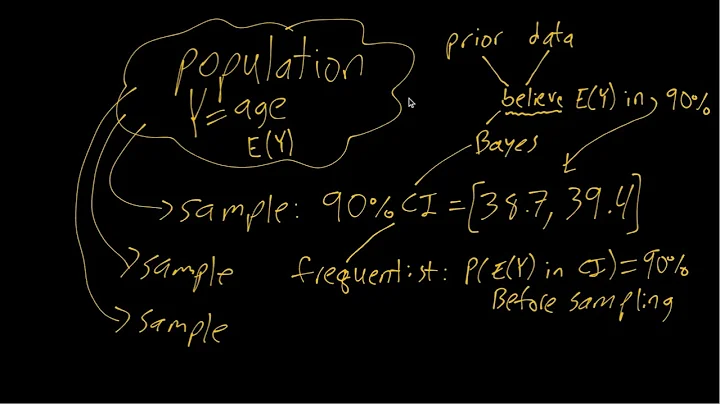 population
Y = age
E(Y)
prior data
believe E(Y) in, 90%
Bayes
sample: 90% CI = [38.7, 39.4]
sample
sample
frequentist: P(E(Y) in CI) = 90%
Before sampling